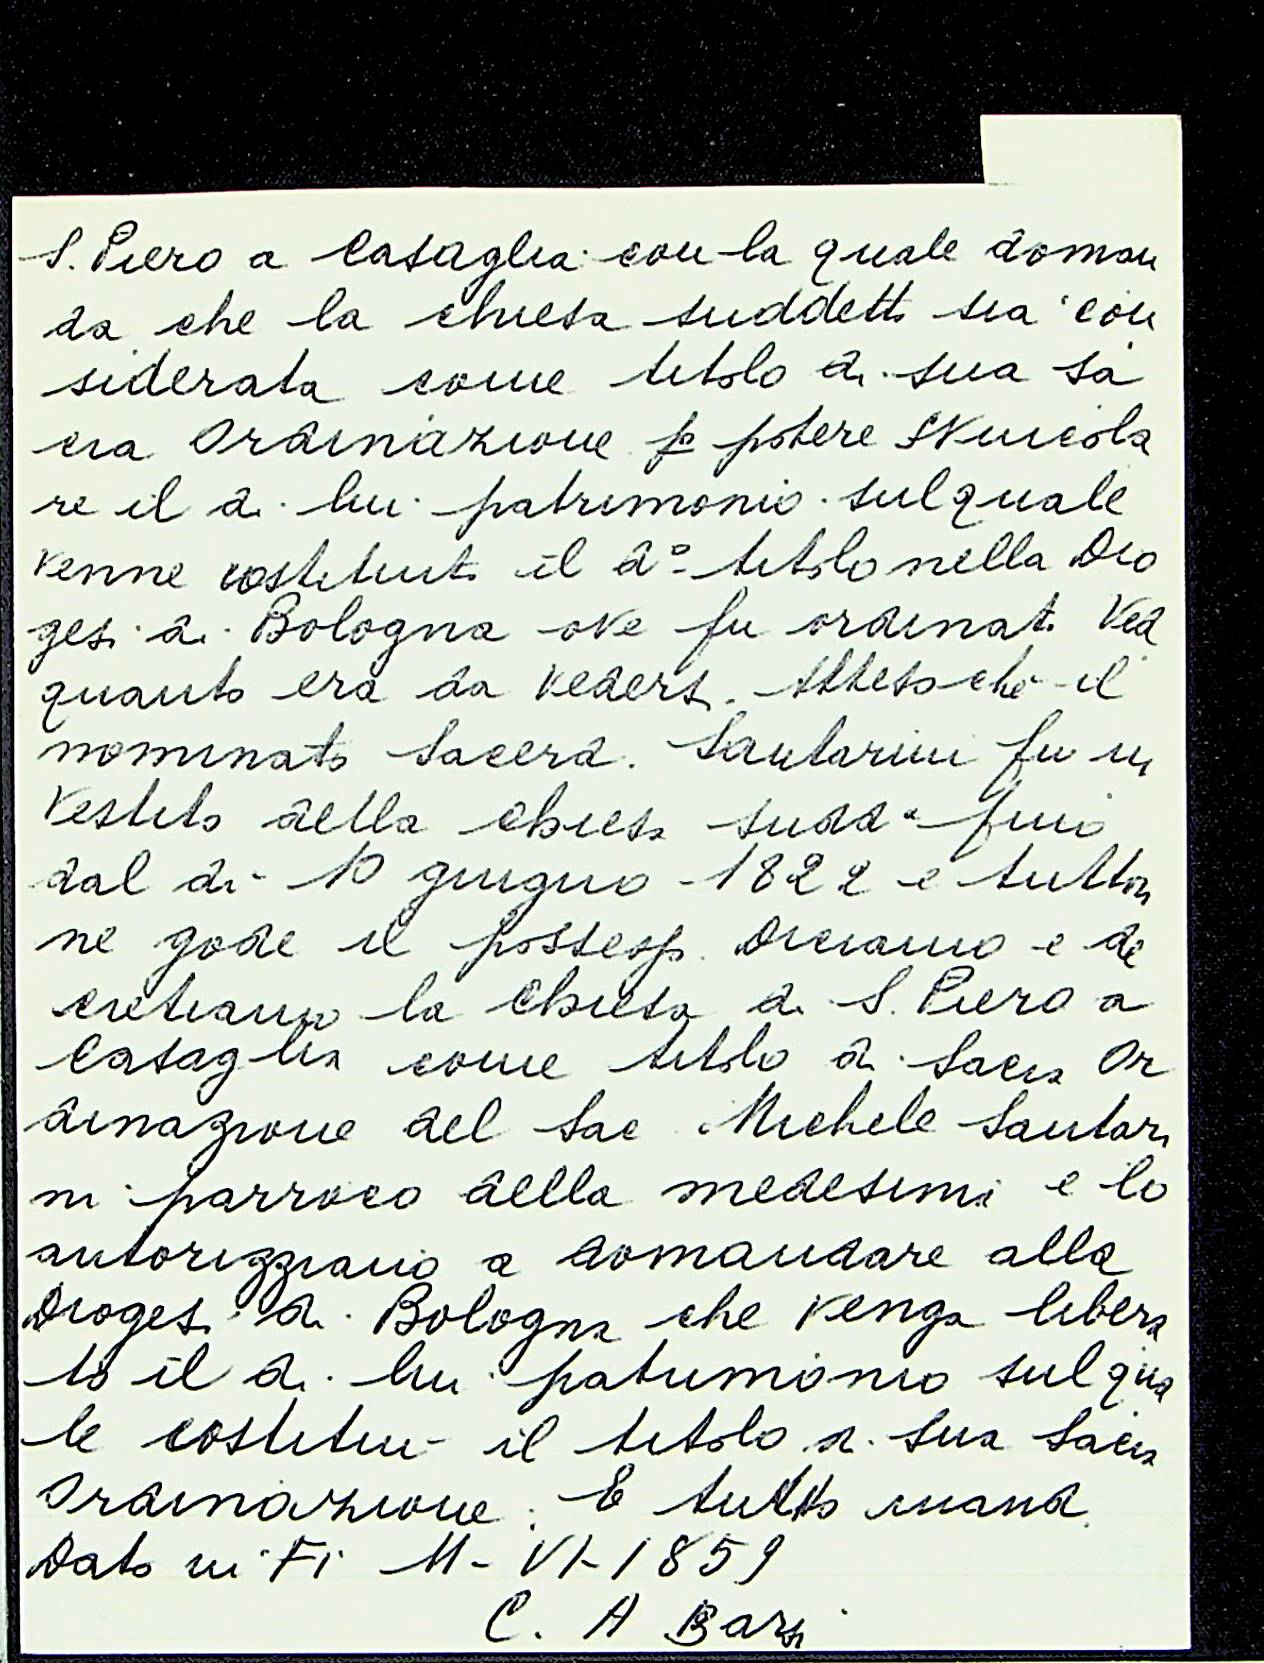 S. Piero a Casaglia con la quale doman
da che la chiesa suddett. sia con
siderata come titolo di sua sa
cra Ordinazione p. potere svincola
re il di lui patrimonio sul quale
venne costituit. il d.° titolo nella Dio
gesi di Bologna ove fu ordinat. Ved
quanto era da vedersi. Attesoché il
nominato Sacerd. Santarini fu in
vestito della chiesa sudd.a fino
dal di 10 giugno 1822 e tutto
ne gode il possesso. Diciamo e de
cretiamo la Chiesa di S. Piero a
Casaglia come titolo di Sacra Or
dinazione del Sac Michele Santari
ni parroco della medesima e lo
autorizziamo a domandare alla
Diogesi di Bologna che venga libera
to il di lui patrimonio sul qua
le costituì il titolo di sua Sacra
Ordinazione. E tutto mand.
Dato in Fi 11-VI-1859
C. A Barsi